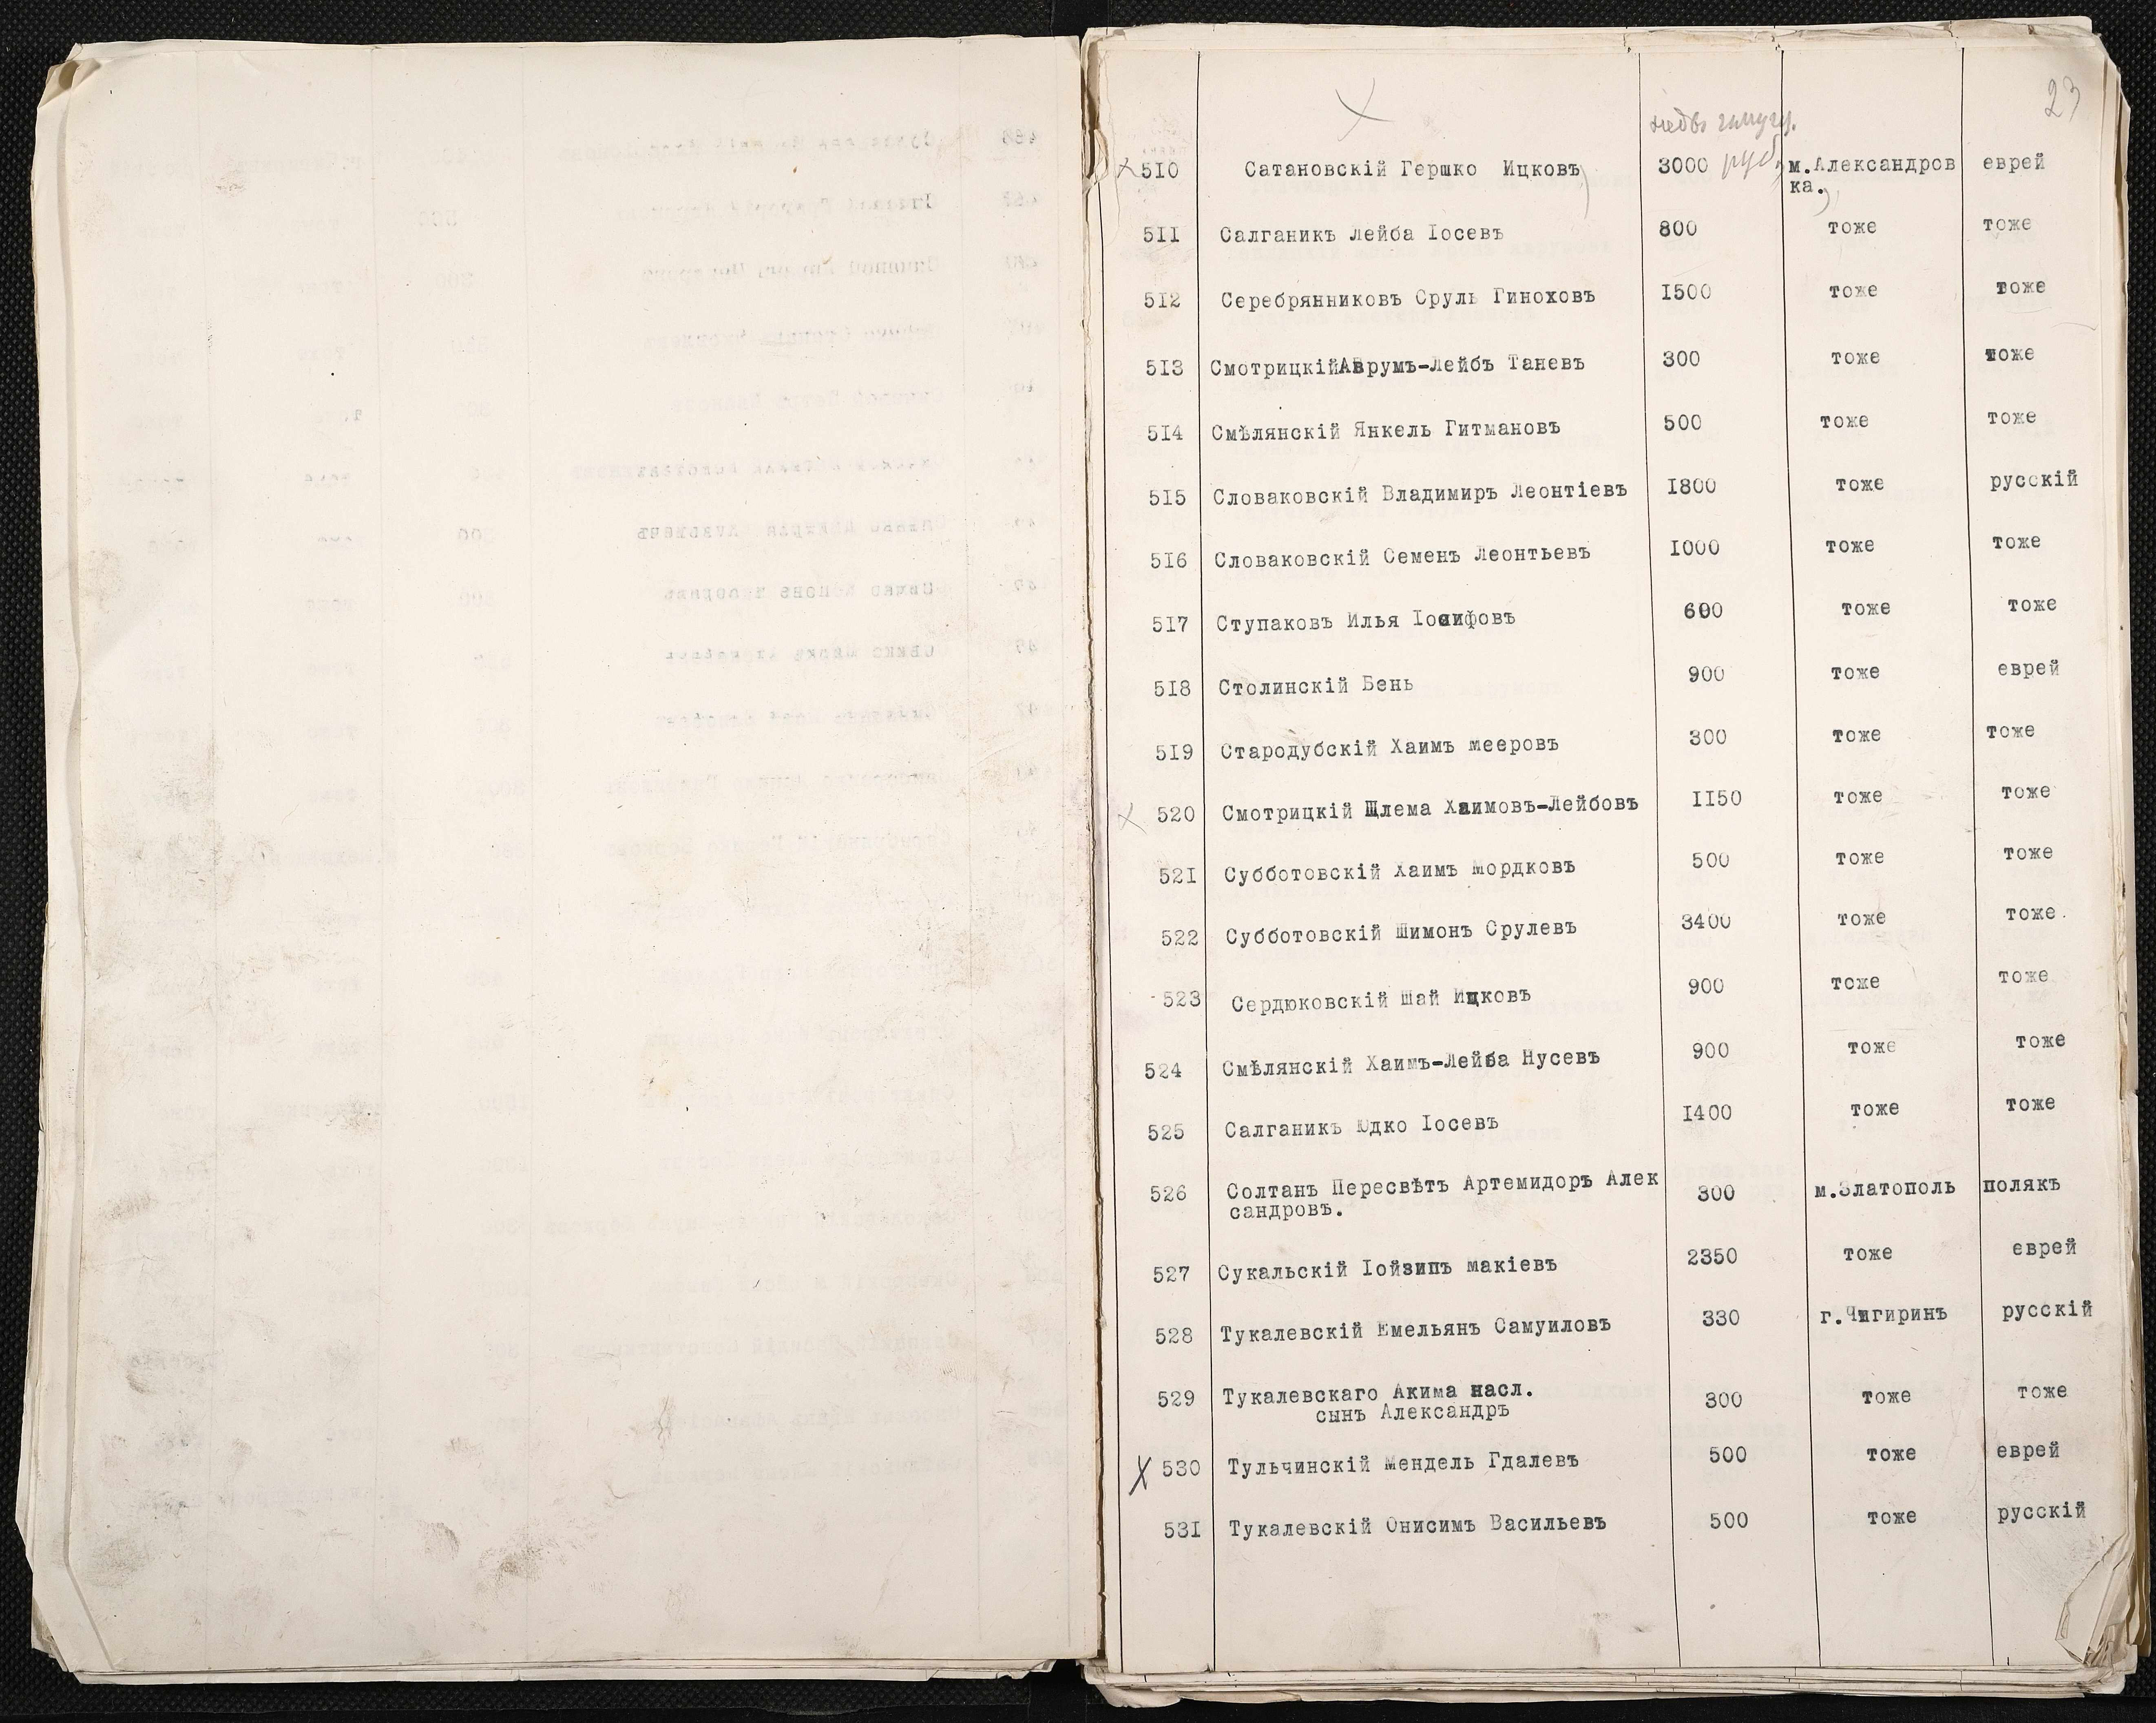 23
510 Сатановскій Гершко Ицковъ 3000 руб. м.Александров еврей
ка.
511 Салганикъ Лейба Іосевъ 800 тоже тоже
512 Серебрянниковъ Сруль Гиноховъ 1500 тоже тоже
513 СмотрицкійАврумъ-Лейбъ Таневъ 300 тоже тоже
514 Смѣлянскій Янкель Гитмановъ 500 тоже тоже
515 Словаковскій Владимиръ Леонтіевъ 1800 тоже русскій
516 Словаковскій Семенъ Леонтьевъ 1000 тоже тоже
517 Ступаковъ Илья Іосифовъ 600 тоже тоже
518 Столинскій Бень 900 тоже еврей
519 Стародубскій Хаимъ Мееровъ 300 тоже тоже
520 Смотрицкій Шлема Хаимовъ-Лейбовъ 1150 тоже тоже
521 Субботовскій Хаимъ Мордковъ 500 тоже тоже
522 Субботовскій Шимонъ Срулевъ 3400 тоже тоже.
523 Сердюковскій Шай Ицковъ 900 тоже тоже
524 Смѣлянскій Хаимъ-Лейба Нусевъ 900 тоже тоже
525 Салганикъ Юдко Іосевъ 1400 тоже тоже
526 Солтанъ Пересвѣтъ Артемидоръ Алек 300 м.Златополь полякъ
сандровъ.
527 Сукальскій Іойзипъ Макіевъ 2350 тоже еврей
528 Тукалевскій Емельянъ Самуиловъ 330 г.Чигиринъ русскій
529 Тукалевскаго Акима насл. 300 тоже тоже
сынъ Александръ
530 Тульчинскій Мендель Гдалевъ 500 тоже еврей
531 Тукалевскій Онисимъ Васильевъ 500 тоже русскій